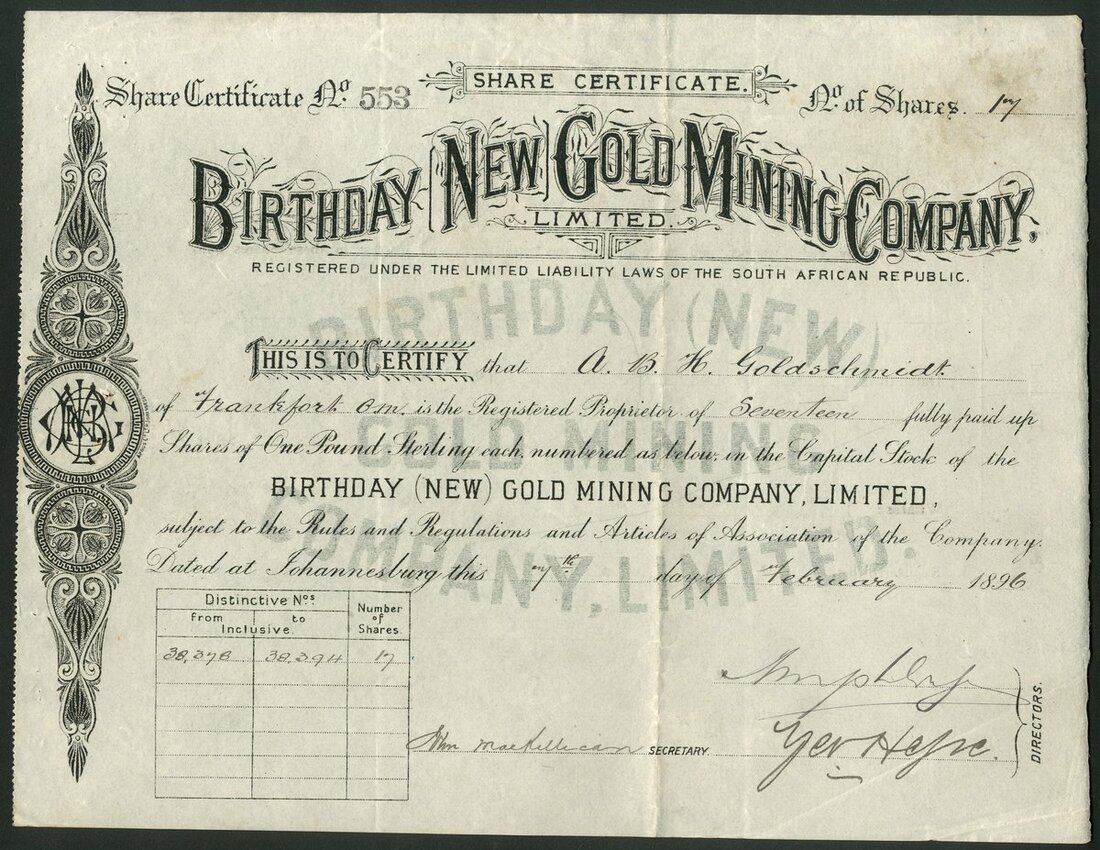 SHARE CERTIFICATE.
Share Certificate No. 553
No. of Shares. 17
BIRTHDAY (NEW) GOLD MINING COMPANY,
LIMITED.
REGISTERED UNDER THE LIMITED LIABILITY LAWS OF THE SOUTH AFRICAN REPUBLIC.
BIRTHDAY (NEW)
GOLD MINING
COMPANY, LIMITED.
THIS IS TO CERTIFY that A. B. H. Goldschmidt
of Frankfort o/m. is the Registered Proprietor of Seventeen fully paid up
Shares of One Pound Sterling each, numbered as below, in the Capital Stock of the
BIRTHDAY (NEW) GOLD MINING COMPANY, LIMITED,
subject to the Rules and Regulations and Articles of Association of the Company.
Dated at Johannesburg this 7th day of February 1896
Distinctive Nos.
from to
Inclusive.
Number of Shares.
38,378 38,394 17
SECRETARY.
DIRECTORS.